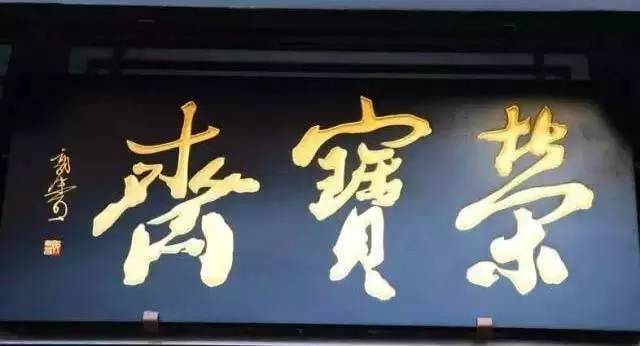 榮寶齋
郭沫若